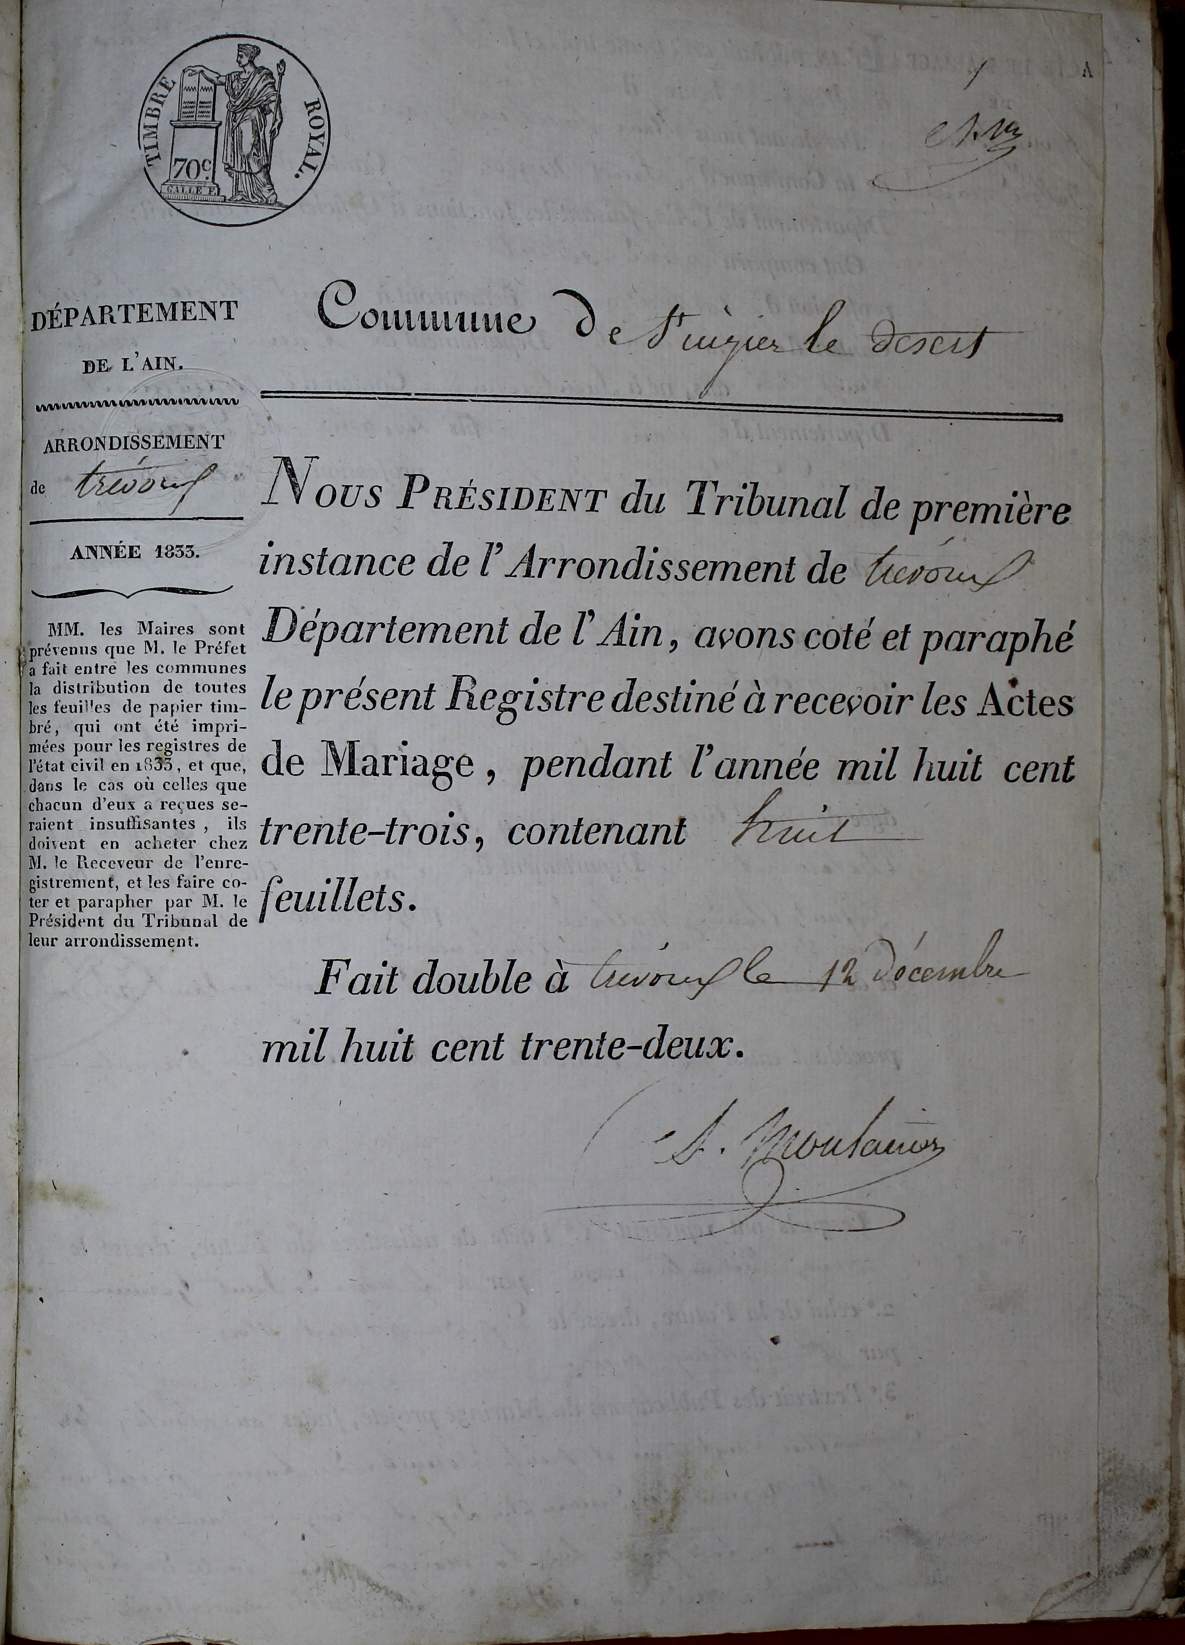 TIMBRE ROYAL.
70 c.
GALLE F.
A
DÉPARTEMENT
DE L'AIN.
ARRONDISSEMENT
de trévoux
ANNÉE 1833.
MM. les Maires sont
prévenus que M. le Préfet
a fait entre les communes
la distribution de toutes
les feuilles de papier tim-
bré, qui ont été impri-
mées pour les registres de
l'état civil en 1833, et que,
dans le cas où celles que
chacun d'eux a reçues se-
raient insuffisantes, ils
doivent en acheter chez
M. le Receveur de l'enre-
gistrement, et les faire co-
ter et parapher par M. le
Président du Tribunal de
leur arrondissement.
Commune De St nizier le desert
NOUS PRÉSIDENT du Tribunal de première
instance de l'Arrondissement de trévoux
Département de l'Ain, avons coté et paraphé
le présent Registre destiné à recevoir les Actes
de Mariage, pendant l'année mil huit cent
trente-trois, contenant huit
feuillets.
Fait double à trévoux le 12 décembre
mil huit cent trente-deux.